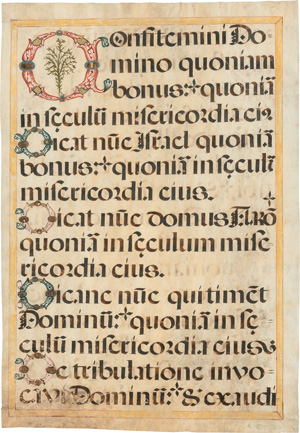 Confitemini Do
mino quoniam
bonus: + quoniā
in sęculū misericordia eiꝰ
Dicat nūc Israel quoniā
bonus: + quoniā in sęculū
misericordia eius.
Dicat nūc domus Aarō
quoniā in seculum mise
ricordia eius.
Dicant nūc qui timēt
Dominū: + quoniā in sę
culū misericordia eius
De tribulatione invo
cavi Dominū: + & exaudi